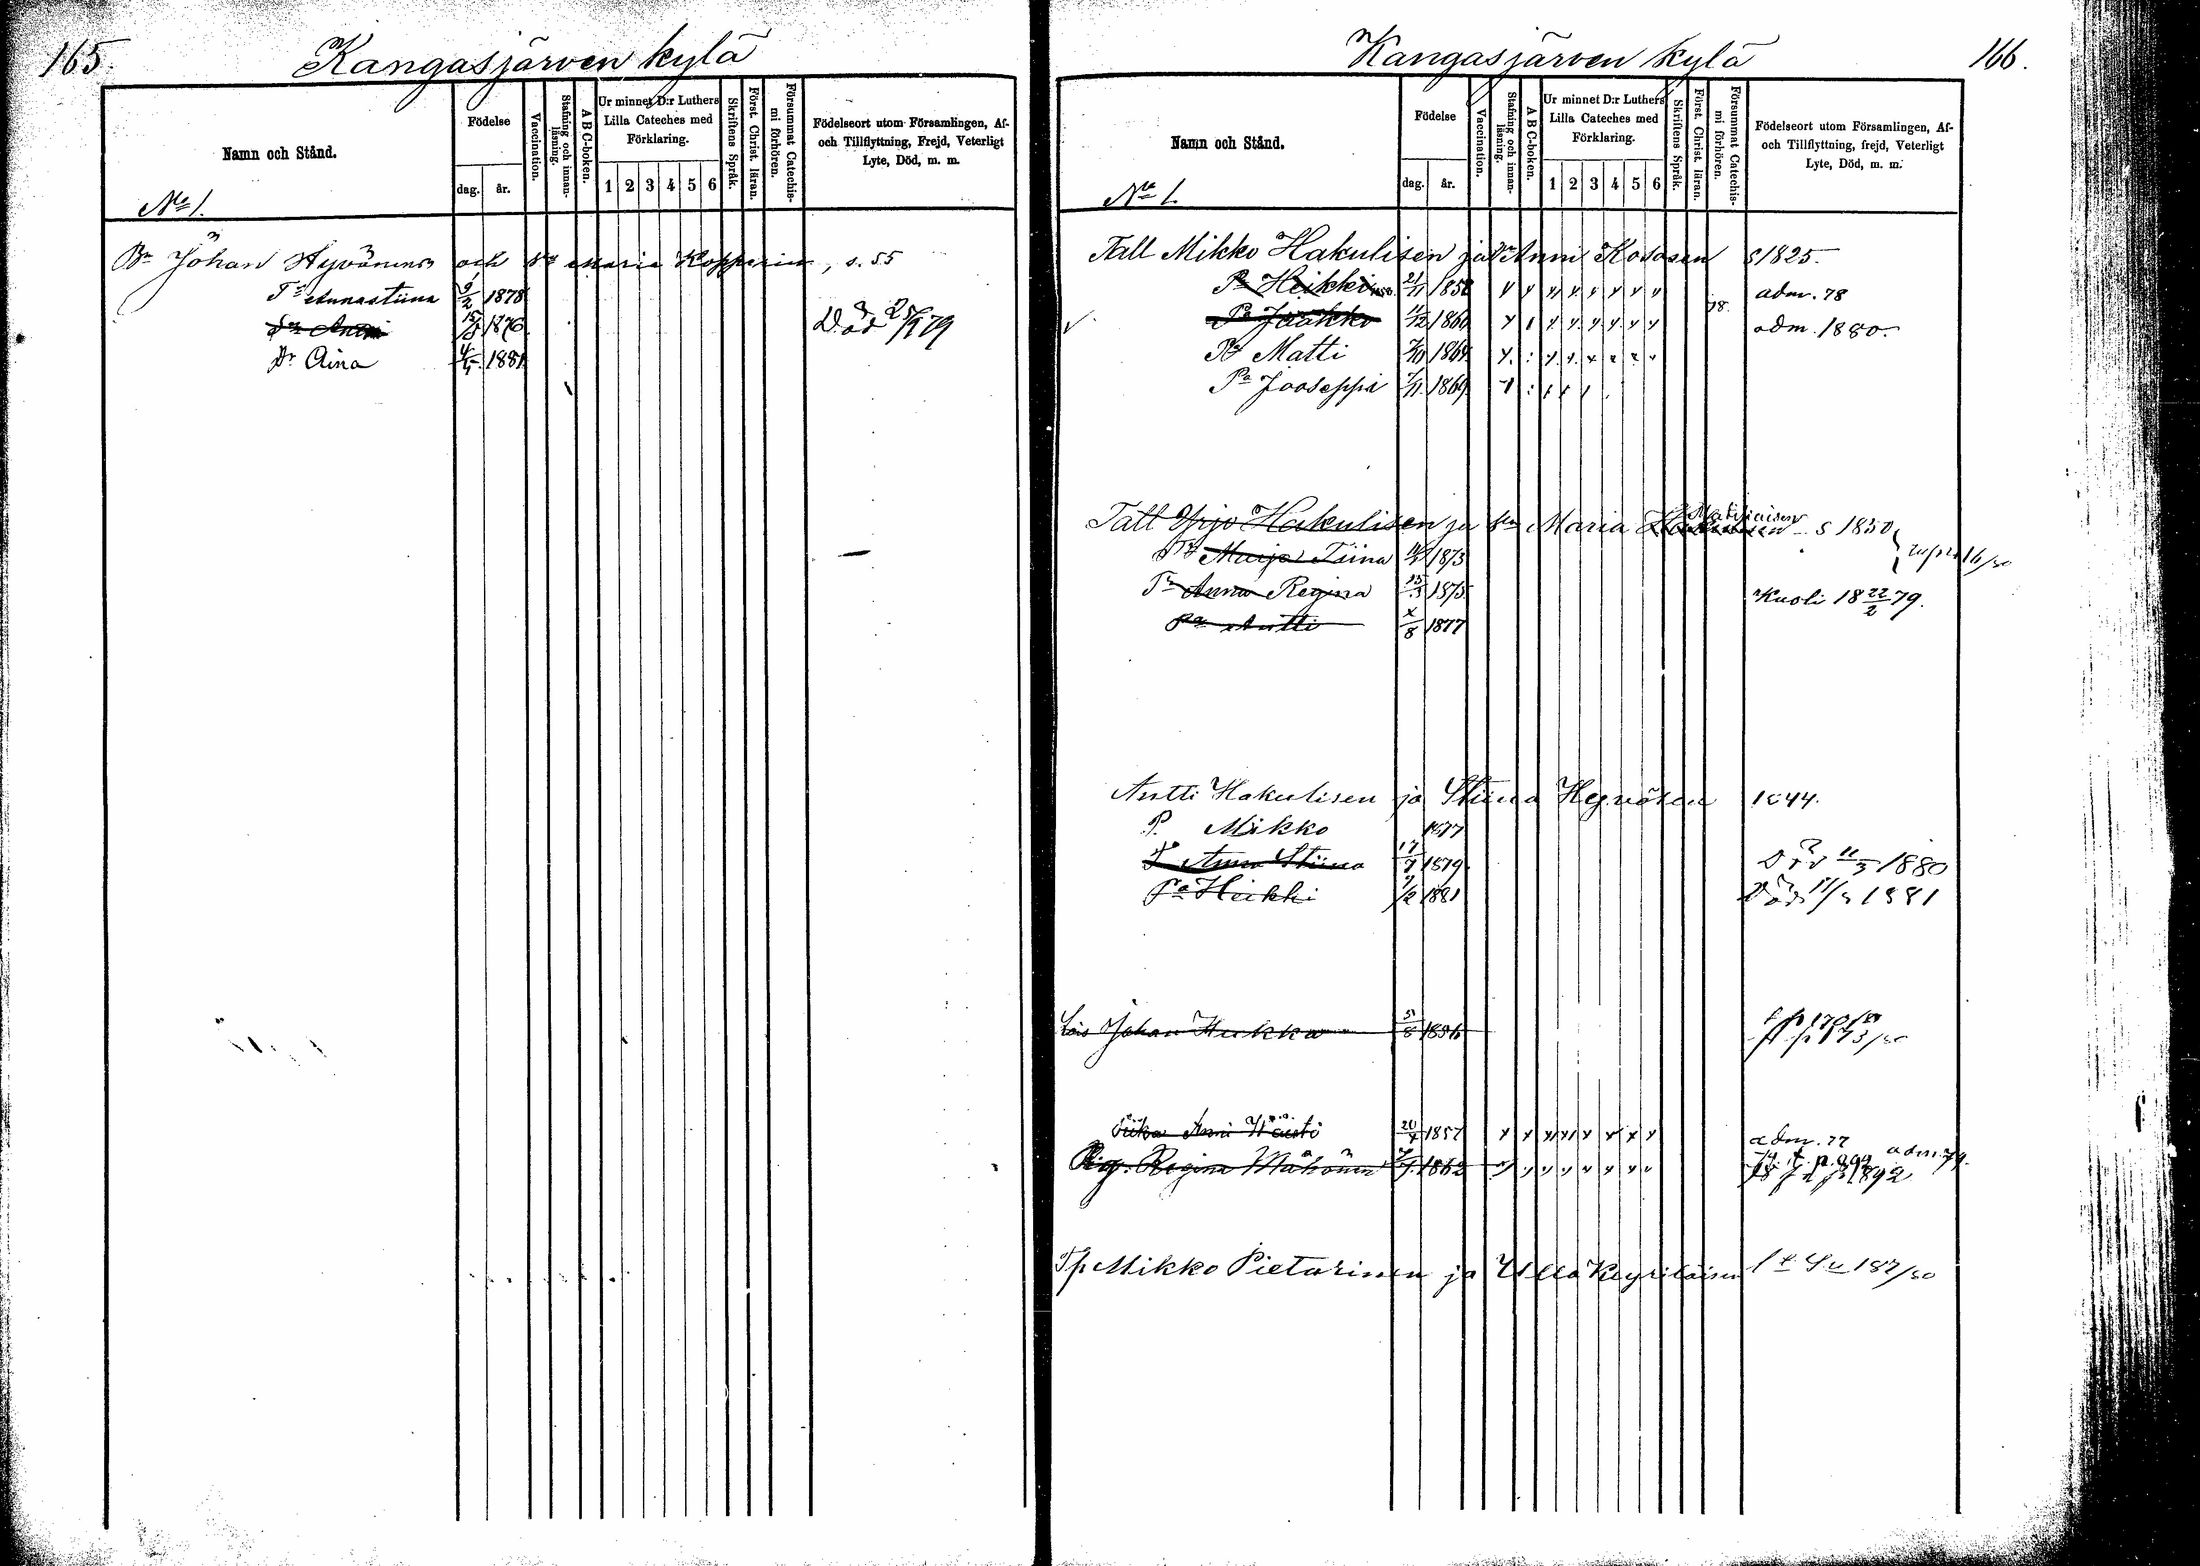 165.
Kangasjärven kylä
Namn och Stånd.
Födelse
dag. år.
Vaccination.
Stafning och innanläsning.
A B C-boken.
Ur minnet D:r Luthers Lilla Cateches med Förklaring.
1 2 3 4 5 6
Skriftens Språk.
Först. Christ. läran.
Försummat Catechismi förhören.
Födelseort utom Församlingen, Af- och Tillflyttning, Frejd, Veterligt Lyte, Död, m. m.
No 1.
Johan Hyvönen och Maria Kopperin, s. 55
Annastiina 9/2 1878
Antti 1876 Död 25/9 79
Dr Aina 1881
Kangasjärven kylä
166.
Namn och Stånd.
Födelse
dag. år.
Vaccination.
Stafning och innanläsning.
A B C-boken.
Ur minnet D:r Luthers Lilla Cateches med Förklaring.
1 2 3 4 5 6
Skriftens Språk.
Först. Christ. läran.
Försummat Catechismi förhören.
Födelseort utom Församlingen, Af- och Tillflyttning, frejd, Veterligt Lyte, Död, m. m.
No 1.
Tall Mikko Hakulisen ja Anni Kososen s 1825.
Pa Heikki 21/11 1858 78. adm. 78
Pa Jaakko 1860 adm. 1880.
Pa Matti 1864
Pa Jooseppi 1869
Tall Yrjo Hakulisen ja Maria s 1850
Marja Tiina 1873
Tr Anna Regina 1875 Kuoli 18 22/2 79.
Pa Antti 1877
Antti Hakulisen ja Stiina Hyvösen 1844.
P. Mikko 1877
T Anna Stiina 17/7 1879 Död 11/3 1880
Pa Heikki 1881 Död 1881
Lois Johan Hukka
Piika Anni Väistö 20/4 1857 adm. 77
Pig. Regina Mähönen 1862 adm 79.
Tp Mikko Pietarinen ja Ulla Kyyriläisen 187/80